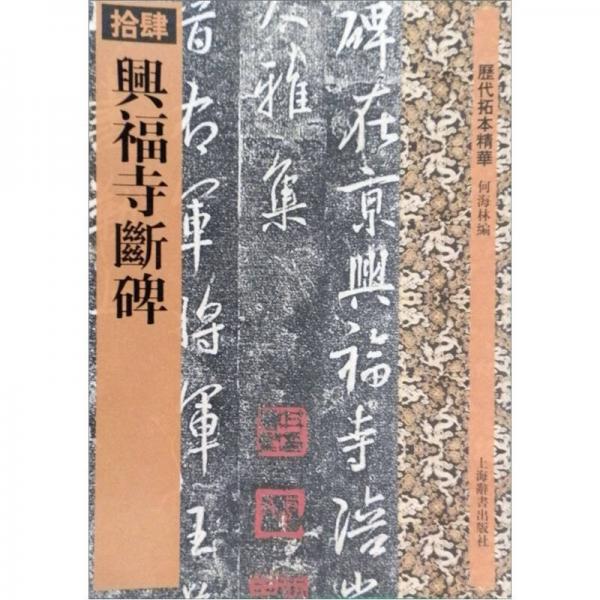 拾肆
興福寺斷碑
歷代拓本精華
何海林编
上海辭書出版社
碑在京興福寺陪
大雅集
晉右軍將軍王